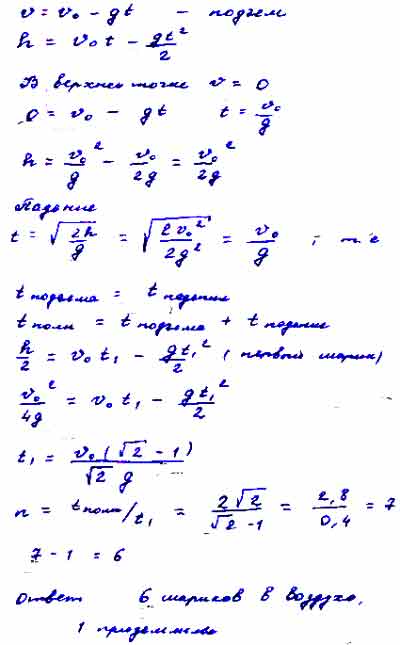 v = v₀ - gt - подъем
h = v₀t - gt²/2
В верхней точке v = 0
0 = v₀ - gt t = v₀/g
h = v₀²/g - v₀/2g = v₀²/2g
Падение
t = √(2h/g) = √(2v₀²/2g²) = v₀/g ; т. е
t подъема = t падение
t полн = t подъема + t падение
h/2 = v₀t₁ - gt₁²/2 (первый шарик)
v₀²/4g = v₀t₁ - gt₁²/2
t₁ = v₀(√2 - 1)/√2 g
n = t полн/t₁ = 2√2/(√2 - 1) = 2,8/0,4 = 7
7 - 1 = 6
Ответ 6 шариков в воздухе,
1